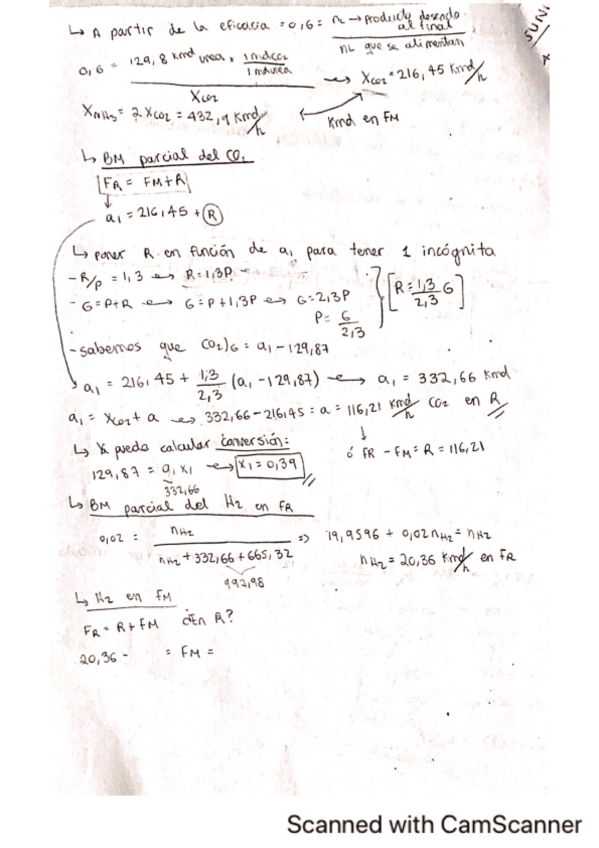 ↳ A partir de la eficacia = 0,6 = nL → producto deseado al final / nL que se alimentan
0,6 = 129,8 kmol urea · 1 mol CO2 / 1 mol urea / XCO2 → XCO2 = 216,45 Kmol/h
XNH3 = 2 XCO2 = 432,9 Kmol/h
Kmol en FM
↳ BM parcial del CO2
FR = FM + R
a1 = 216,45 + R
↳ poner R en función de a1 para tener 1 incógnita
- R/P = 1,3 → R = 1,3P
- G = P + R → G = P + 1,3P → G = 2,3P
P = G/2,3
[R = 1,3/2,3 G]
- sabemos que CO2)G = a1 - 129,87
a1 = 216,45 + 1,3/2,3 (a1 - 129,87) → a1 = 332,66 Kmol
a1 = XCO2 + a → 332,66 - 216,45 = a = 116,21 Kmol/h CO2 en R
↳ Ya puedo calcular conversión:
ó FR - FM = R = 116,21
129,87 = a1 x1 → x1 = 0,39
332,66
↳ BM parcial del H2 en FR
0,02 = nH2 / nH2 + 332,66 + 665,32 => 19,9596 + 0,02 nH2 = nH2
nH2 = 20,36 Kmol/h en FR
992,98
↳ H2 en FM
FR = R + FM ¿En R?
20,36 - = FM =
Scanned with CamScanner